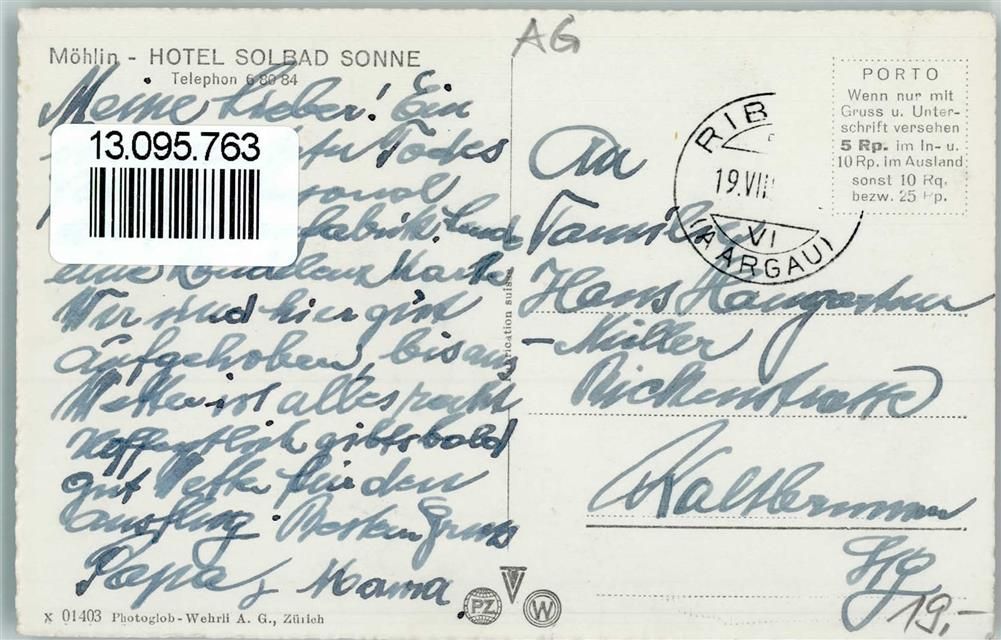 AG
Möhlin - HOTEL SOLBAD SONNE
Telephon 6 80 84
Meine Lieber! Ein
Todes
13.095.763
fabrik. Send
eine Kondolenz Karte
Wir sind hier gut
aufgehoben, bis aufs
Wetter ist alles recht
hoffentlich gibts bald
gut Wetter für den
Ausflug. Besten Gruss
Papa, Mama
Fabrication suisse
PORTO
Wenn nur mit
Gruss u. Unter-
schrift versehen
5 Rp. im In- u.
10 Rp. im Ausland
sonst 10 Rp.
bezw. 25 Rp.
RIB
19.VIII
VI
(AARGAU)
An
Familie
Hans
- Müller
Rickenstrasse
Kaltbrunnen
Stg
19.-
x 01403 Photoglob-Wehrli A. G., Zürich
PZ W